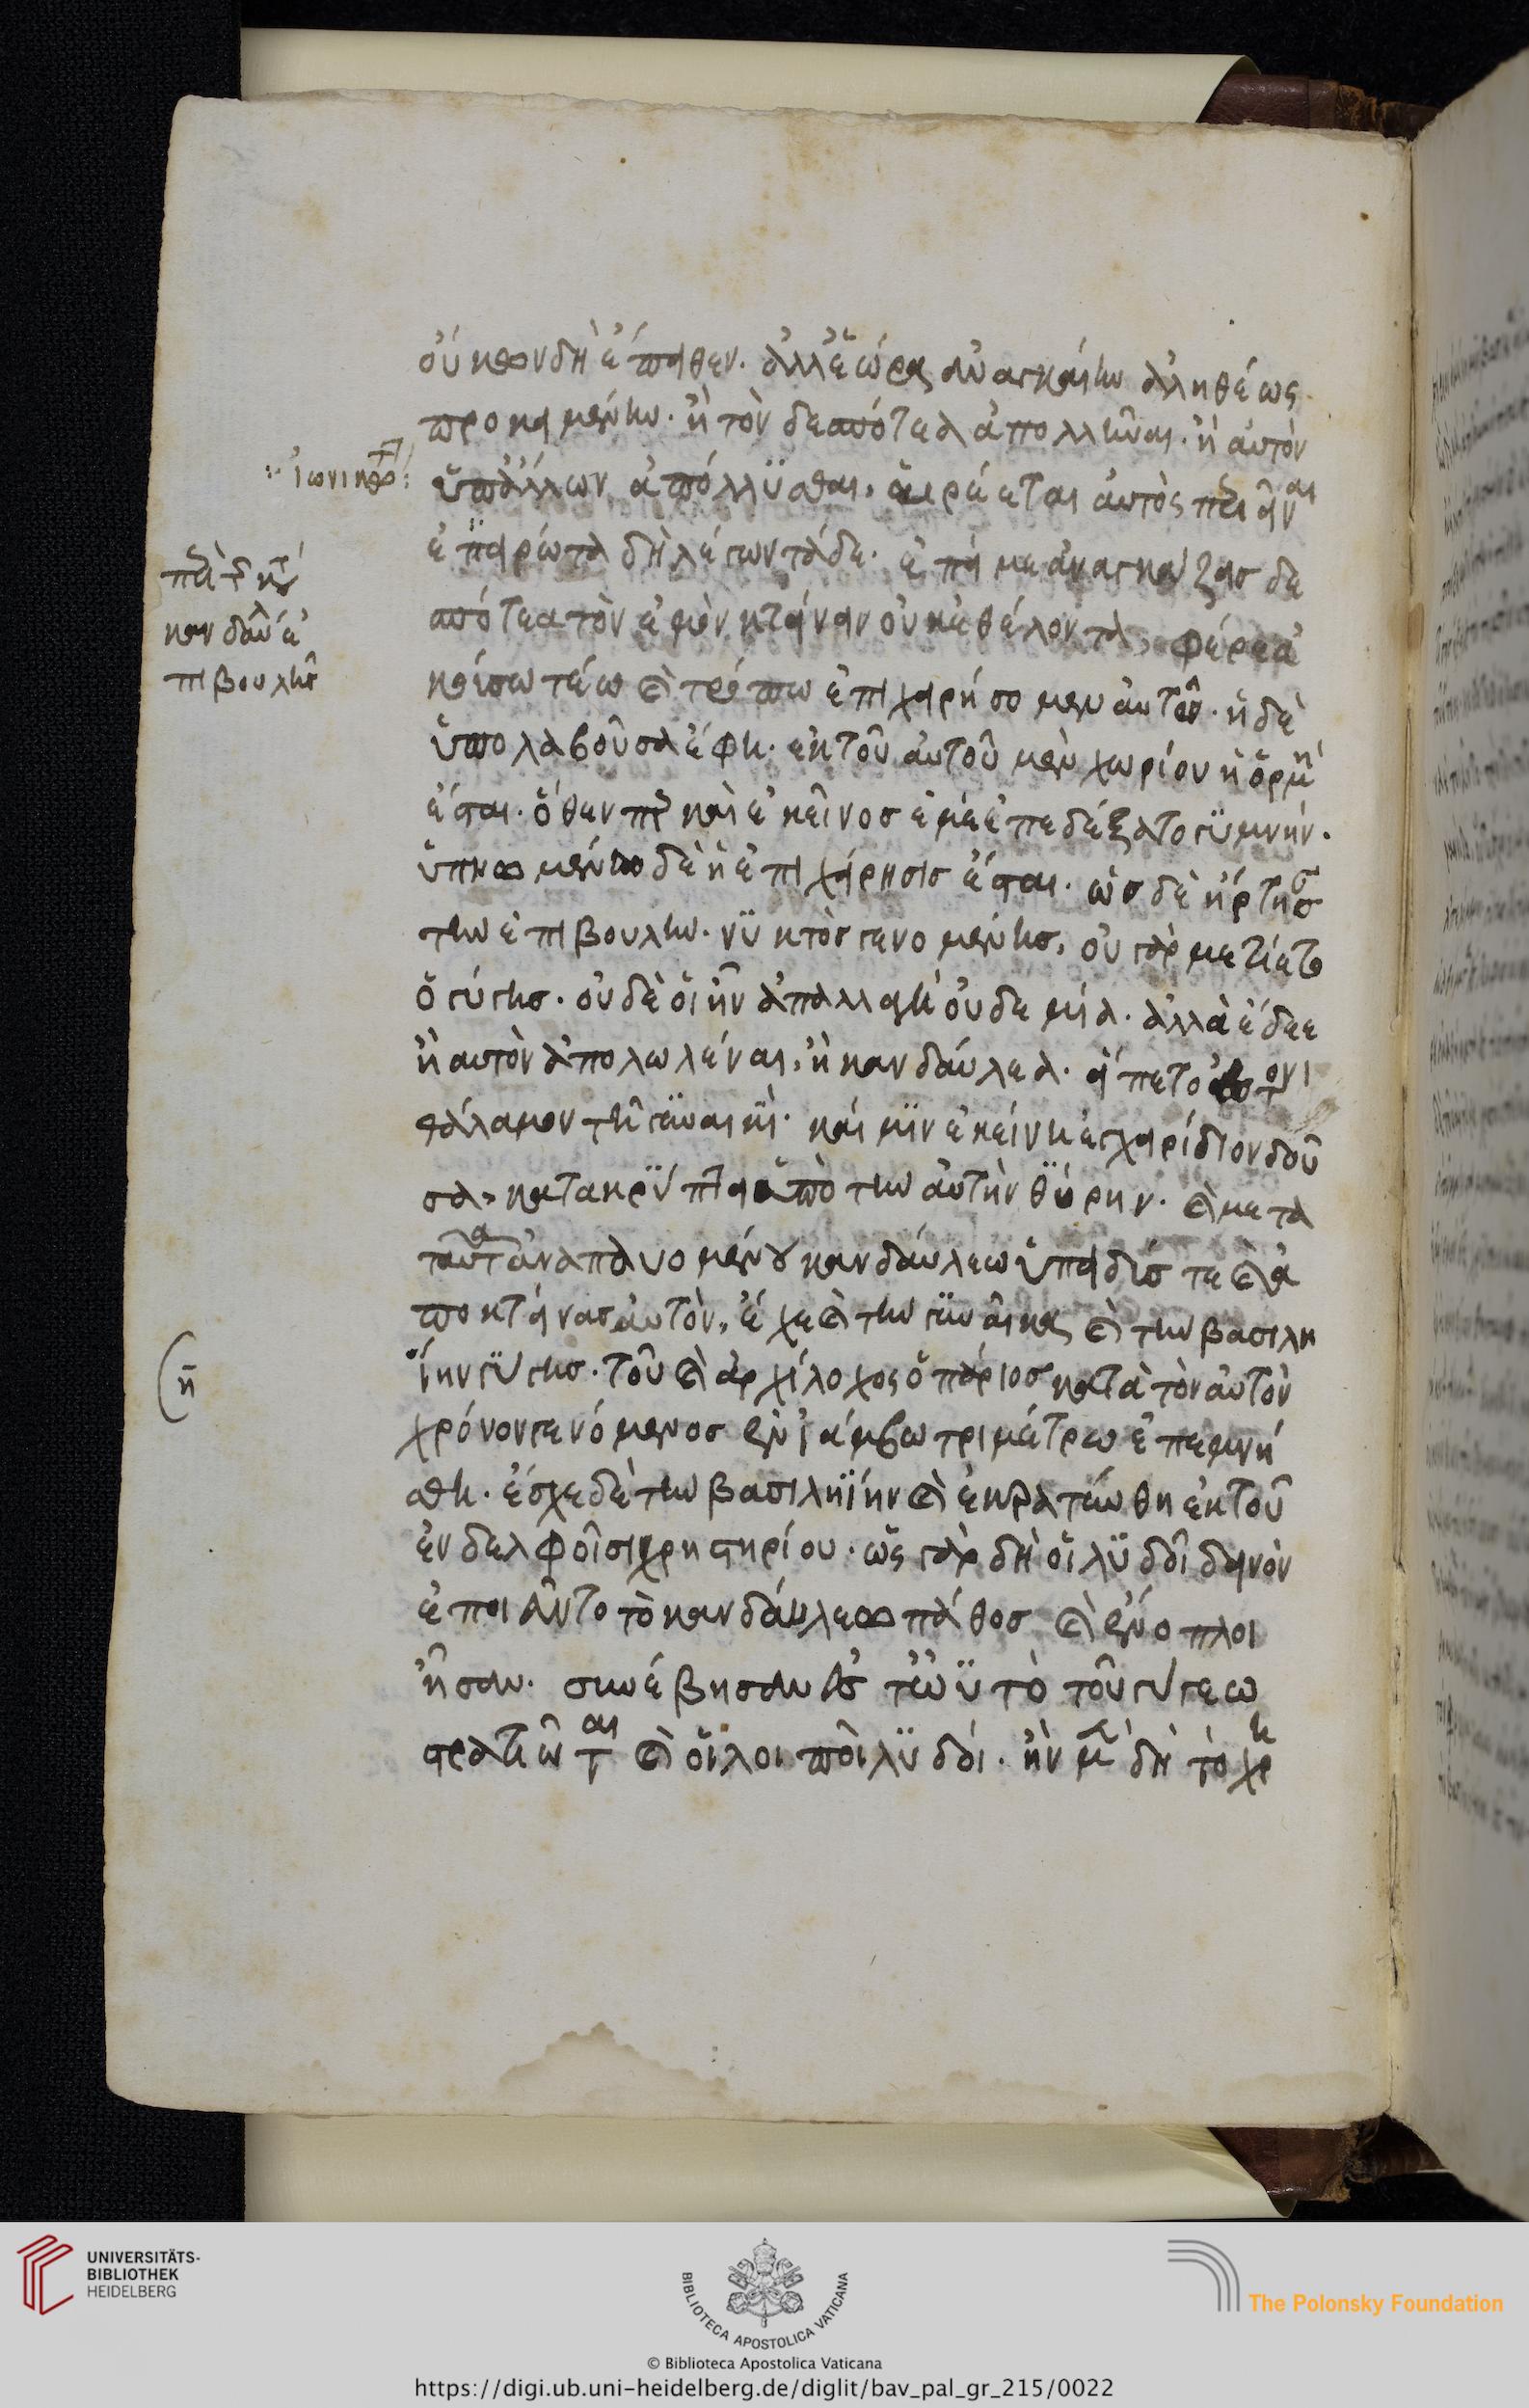 οὔκων δὴ ἔπειθεν. ἀλλ' ἑώρα ἀναγκαίην ἀληθέως
προκειμένην. ἢ τὸν δεσπότεα ἀπολλῦναι. ἢ αὐτὸν
ὑπ' ἄλλων ἀπόλλυσθαι. αἱρέεται αὐτὸς περιεῖναι
ἐπειρώτα δὴ λέγων τάδε. ἐπεί με ἀναγκάζεις δε
σπότεα τὸν ἐμὸν κτείνειν οὐκ ἐθέλοντα, φέρε ἀ
κούσω τέῳ καὶ τρόπῳ ἐπιχειρήσομεν αὐτῷ. ἡ δὲ
ὑπολαβοῦσα ἔφη. ἐκ τοῦ αὐτοῦ μὲν χωρίου ἡ ὁρμὴ
ἔσται. ὅθεν περ καὶ ἐκεῖνος ἐμὲ ἐπεδέξατο γυμνήν.
ὑπνωμένῳ δὲ ἡ ἐπιχείρησις ἔσται. ὡς δὲ ἤρτησαν
τὴν ἐπιβουλήν. νυκτὸς γενομένης, οὐ γὰρ μετίετο
ὁ γύγης. οὐδέ οἱ ἦν ἀπαλλαγὴ οὐδεμία. ἀλλὰ ἔδεε
ἢ αὐτὸν ἀπολωλέναι, ἢ κανδαύλεα. εἵπετο ἐς τὸν
θάλαμον τῇ γυναικί. καί μιν ἐκείνη ἐγχειρίδιον δοῦ
σα, κατακρύπτει ὑπὸ τὴν αὐτὴν θύρην. καὶ μετὰ
ταῦτα ἀναπαυομένου κανδαύλεω ὑπεκδύς τε καὶ ἀ
ποκτείνας αὐτὸν, ἔσχε καὶ τὴν γυναῖκα καὶ τὴν βασιλη
ΐην γύγης. τοῦ καὶ ἀρχίλοχος ὁ πάριος κατὰ τὸν αὐτὸν
χρόνον γενόμενος ἐν ἰάμβῳ τριμέτρῳ ἐπεμνή
σθη. ἔσχε δὲ τὴν βασιληΐην καὶ ἐκρατύνθη ἐκ τοῦ
ἐν δελφοῖσι χρηστηρίου. ὡς γὰρ δὴ οἱ λυδοὶ δεινὸν
ἐποιεῦντο τὸ κανδαύλεω πάθος καὶ ἐν ὅπλοι
ἦσαν. συνέβησαν ἐς τὠυτὸ τοῦ γύγεω
στασιῶται καὶ οἱ λοιποὶ λυδοί. ἢν μὲν δὴ τὸ χρη
ἰωνικόν
περὶ τῆς κατὰ
κανδαύλου ἐ
πιβουλῆς
η
UNIVERSITÄTS-
BIBLIOTHEK
HEIDELBERG
BIBLIOTECA APOSTOLICA VATICANA
The Polonsky Foundation
© Biblioteca Apostolica Vaticana
https://digi.ub.uni-heidelberg.de/diglit/bav_pal_gr_215/0022